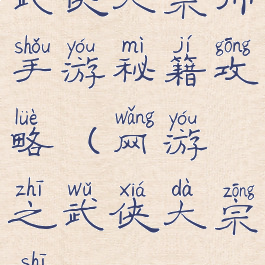 武侠大宗师
shǒu yóu mì jí gōng
手游秘籍攻
lüè wǎng yóu
略(网游
zhī wǔ xiá dà zōng
之武侠大宗
shī